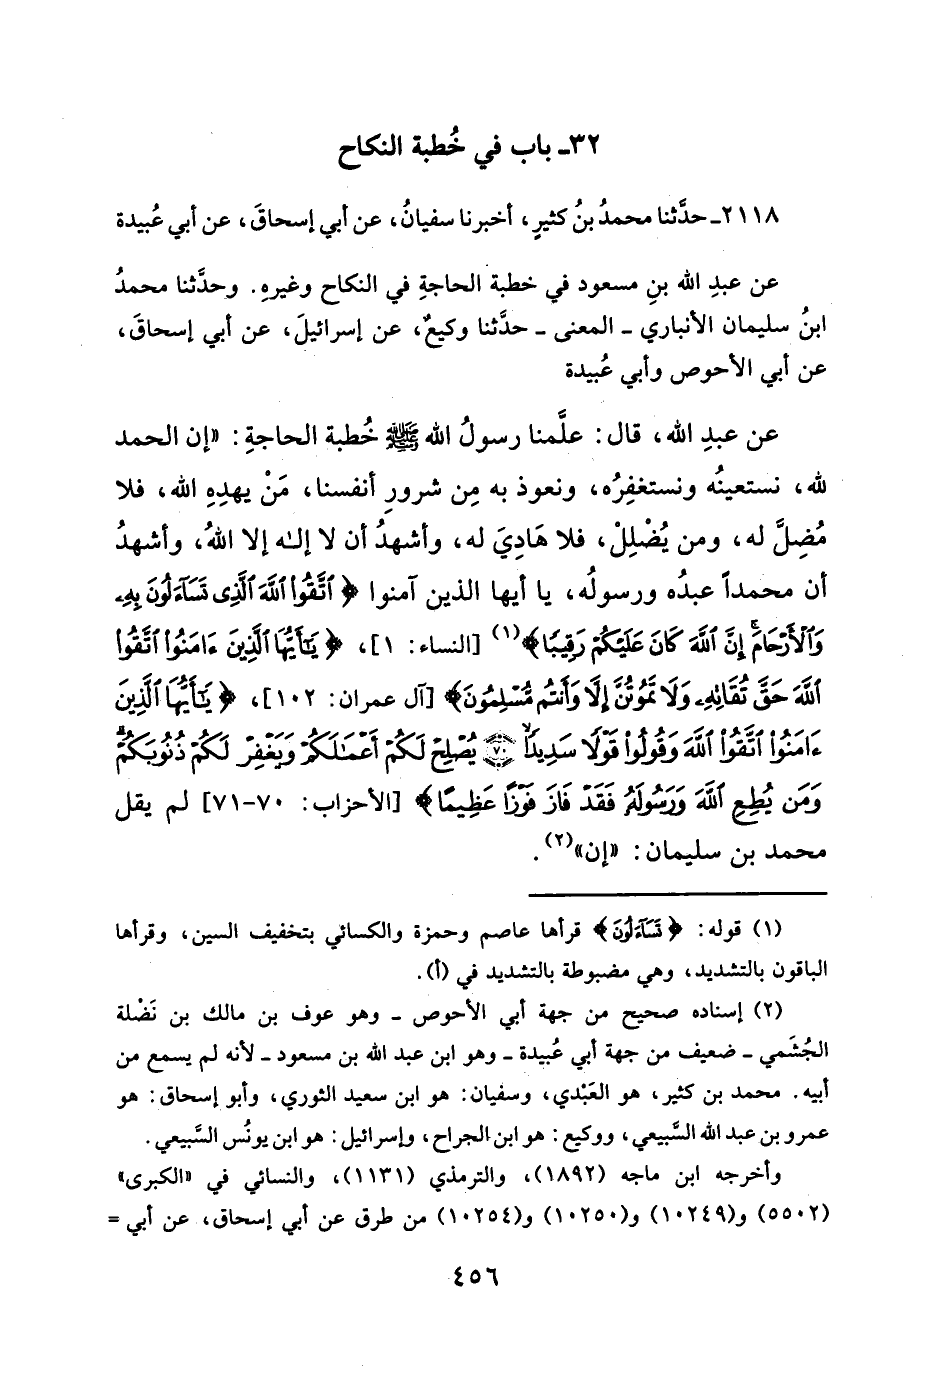 ٣٢ـ باب في خُطبة النكاح
٢١١٨ـ حدَّثنا محمدُ بنُ كثيرٍ، أخبرنا سفيانُ، عن أبي إسحاقَ، عن أبي عُبيدة
عن عبدِ الله بنِ مسعود في خطبة الحاجةِ في النكاح وغيرهِ. وحدَّثنا محمدُ
ابنُ سليمان الأنباري ـ المعنى ـ حدَّثنا وكيعٌ، عن إسرائيلَ، عن أبي إسحاقَ،
عن أبي الأحوص وأبي عُبيدة
عن عبدِ الله، قال: علَّمنا رسولُ الله ﷺ خُطبة الحاجةِ: «إن الحمد
لله، نستعينُه ونستغفِرُه، ونعوذ به مِن شرورِ أنفسنا، مَنْ يهدِهِ الله، فلا
مُضِلَّ له، ومن يُضْلِلْ، فلا هَادِيَ له، وأشهدُ أن لا إلٰه إلا اللهُ، وأشهدُ
أن محمداً عبدُه ورسولُه، يا أيها الذين آمنوا ﴿ٱتَّقُوا۟ ٱللَّهَ ٱلَّذِى تَسَآءَلُونَ بِهِۦ
وَٱلْأَرْحَامَۚ إِنَّ ٱللَّهَ كَانَ عَلَيْكُمْ رَقِيبًا﴾(١) [النساء: ١]، ﴿يَـٰٓأَيُّهَا ٱلَّذِينَ ءَامَنُوا۟ ٱتَّقُوا۟
ٱللَّهَ حَقَّ تُقَاتِهِۦ وَلَا تَمُوتُنَّ إِلَّا وَأَنتُم مُّسْلِمُونَ﴾ [آل عمران: ١٠٢]، ﴿يَـٰٓأَيُّهَا ٱلَّذِينَ
ءَامَنُوا۟ ٱتَّقُوا۟ ٱللَّهَ وَقُولُوا۟ قَوْلًا سَدِيدًا ۝٧٠ يُصْلِحْ لَكُمْ أَعْمَـٰلَكُمْ وَيَغْفِرْ لَكُمْ ذُنُوبَكُمْۗ
وَمَن يُطِعِ ٱللَّهَ وَرَسُولَهُۥ فَقَدْ فَازَ فَوْزًا عَظِيمًا﴾ [الأحزاب: ٧٠-٧١] لم يقل
محمد بن سليمان: «إن»(٢).
(١) قوله: ﴿تَسَآءَلُونَ﴾ قرأها عاصم وحمزة والكسائي بتخفيف السين، وقرأها
الباقون بالتشديد، وهي مضبوطة بالتشديد في (أ).
(٢) إسناده صحيح من جهة أبي الأحوص ـ وهو عوف بن مالك بن نَضْلة
الجُشَمي ـ ضعيف من جهة أبي عُبيدة ـ وهو ابن عبد الله بن مسعود ـ لأنه لم يسمع من
أبيه. محمد بن كثير، هو العَبْدي، وسفيان: هو ابن سعيد الثوري، وأبو إسحاق: هو
عمرو بن عبد الله السَّبيعي، ووكيع: هو ابن الجراح، وإسرائيل: هو ابن يونُس السَّبيعي.
وأخرجه ابن ماجه (١٨٩٢)، والترمذي (١١٣١)، والنسائي في «الكبرى»
(٥٥٠٢) و(١٠٢٤٩) و(١٠٢٥٠) و(١٠٢٥٤) من طرق عن أبي إسحاق، عن أبي =
٤٥٦